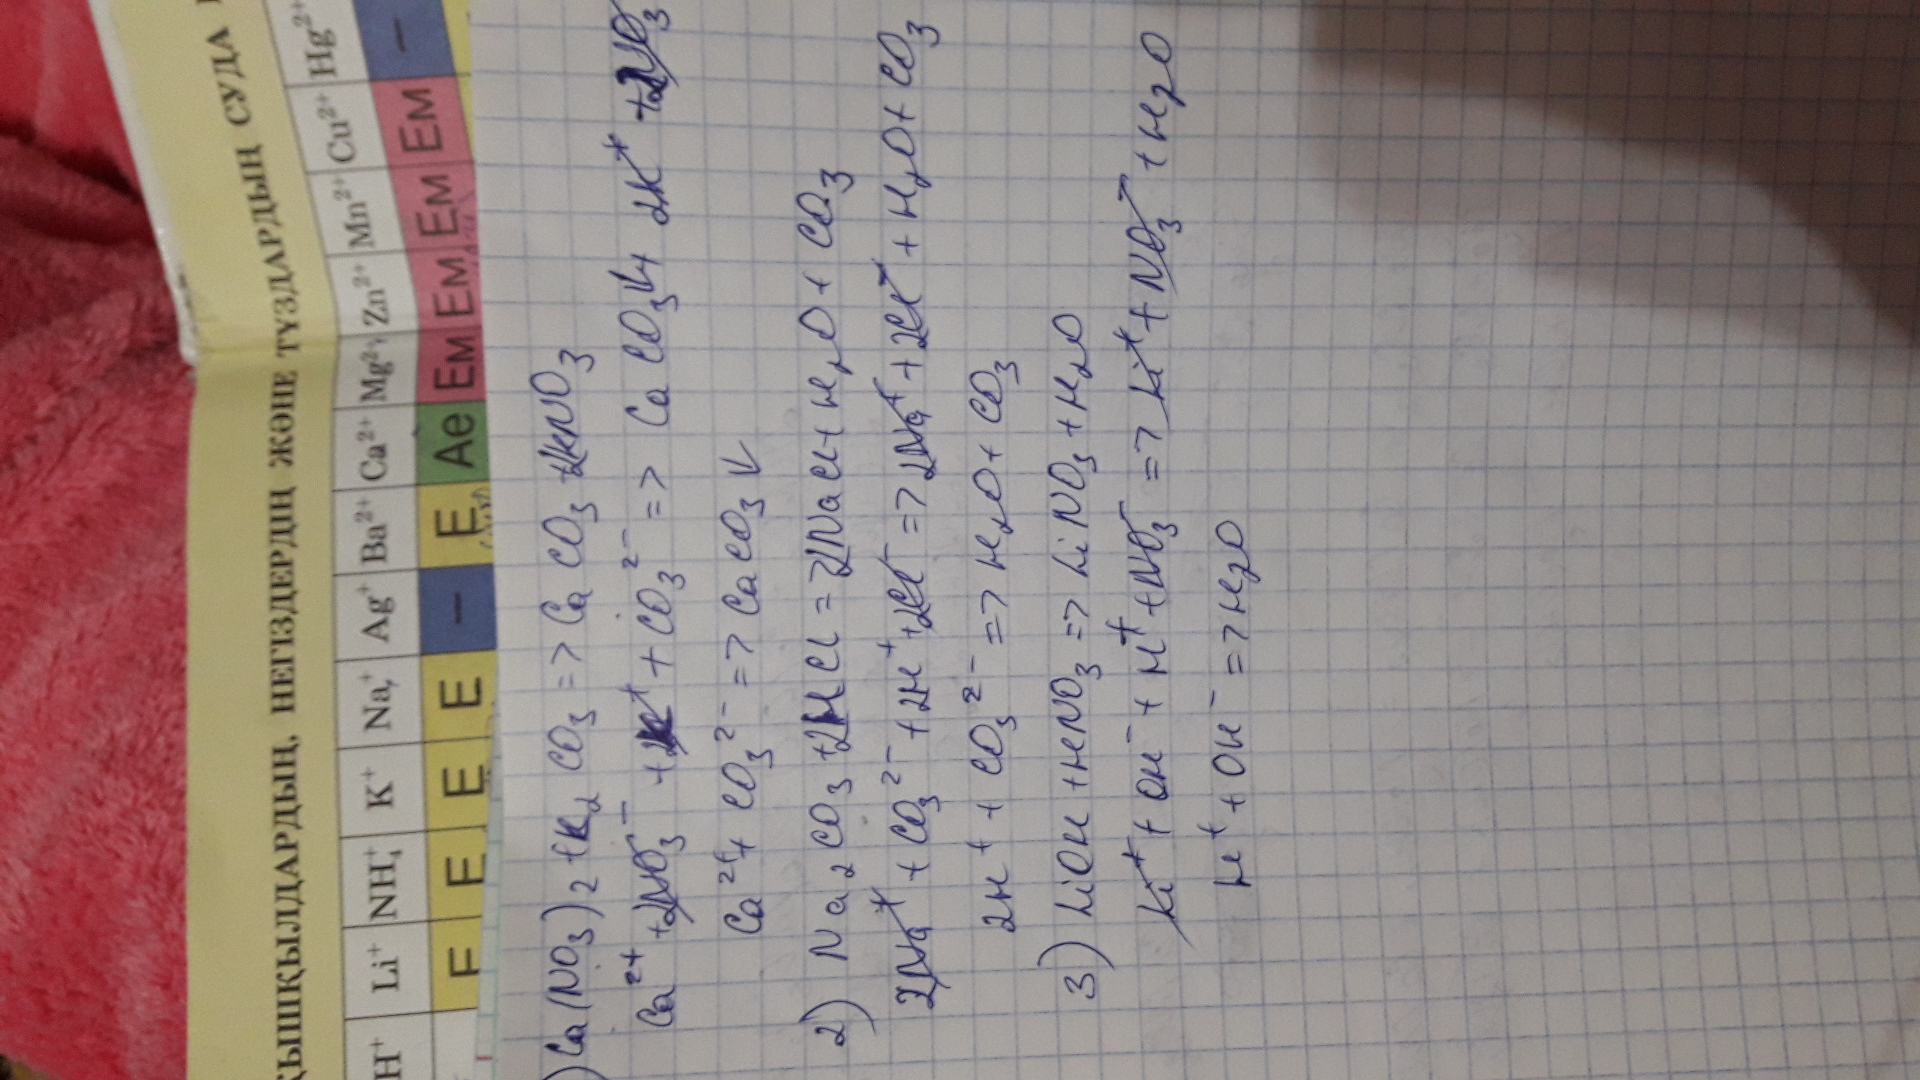 ҚЫШҚЫЛДАРДЫҢ, НЕГІЗДЕРДІҢ ЖӘНЕ ТҰЗДАРДЫҢ СУДА
H⁺ Li⁺ NH₄⁺ K⁺ Na⁺ Ag⁺ Ba²⁺ Ca²⁺ Mg²⁺ Zn²⁺ Mn²⁺ Cu²⁺ Hg²⁺
Е Е Е Е – Е Ае Ем Ем Ем Ем –
) Ca(NO3)2 + K2CO3 => CaCO3 + 2KNO3
Ca²⁺ + 2NO3⁻ + 2K⁺ + CO3²⁻ => CaCO3↓ + 2K⁺ + 2NO3
Ca²⁺ + CO3²⁻ => CaCO3↓
2) Na2CO3 + 2HCl => 2NaCl + H2O + CO3
2Na⁺ + CO3²⁻ + 2H⁺ + 2Cl⁻ => 2Na⁺ + 2Cl⁻ + H2O + CO3
2H⁺ + CO3²⁻ => H2O + CO3
3) LiOH + HNO3 => LiNO3 + H2O
Li⁺ + OH⁻ + H⁺ + NO3⁻ => Li⁺ + NO3⁻ + H2O
H⁺ + OH⁻ => H2O